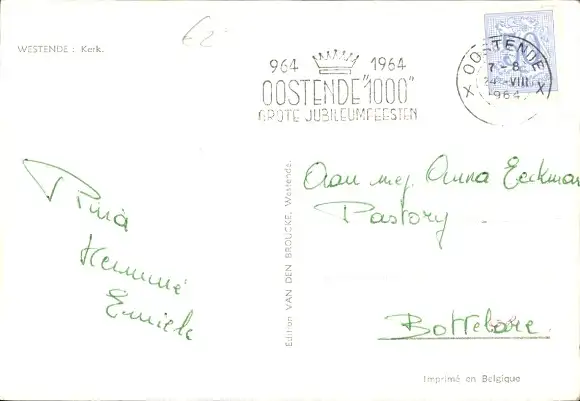 WESTENDE : Kerk.
€2
964 1964
OOSTENDE "1000"
GROTE JUBILEUMFEESTEN
OOSTENDE
7 - 8
24 VIII
1964
X X
Pina
Emiele
Edition VAN DEN BROUCKE, Westende.
Aan mej. Anna Eeckman
Pastory
Bottelare.
Imprimé en Belgique